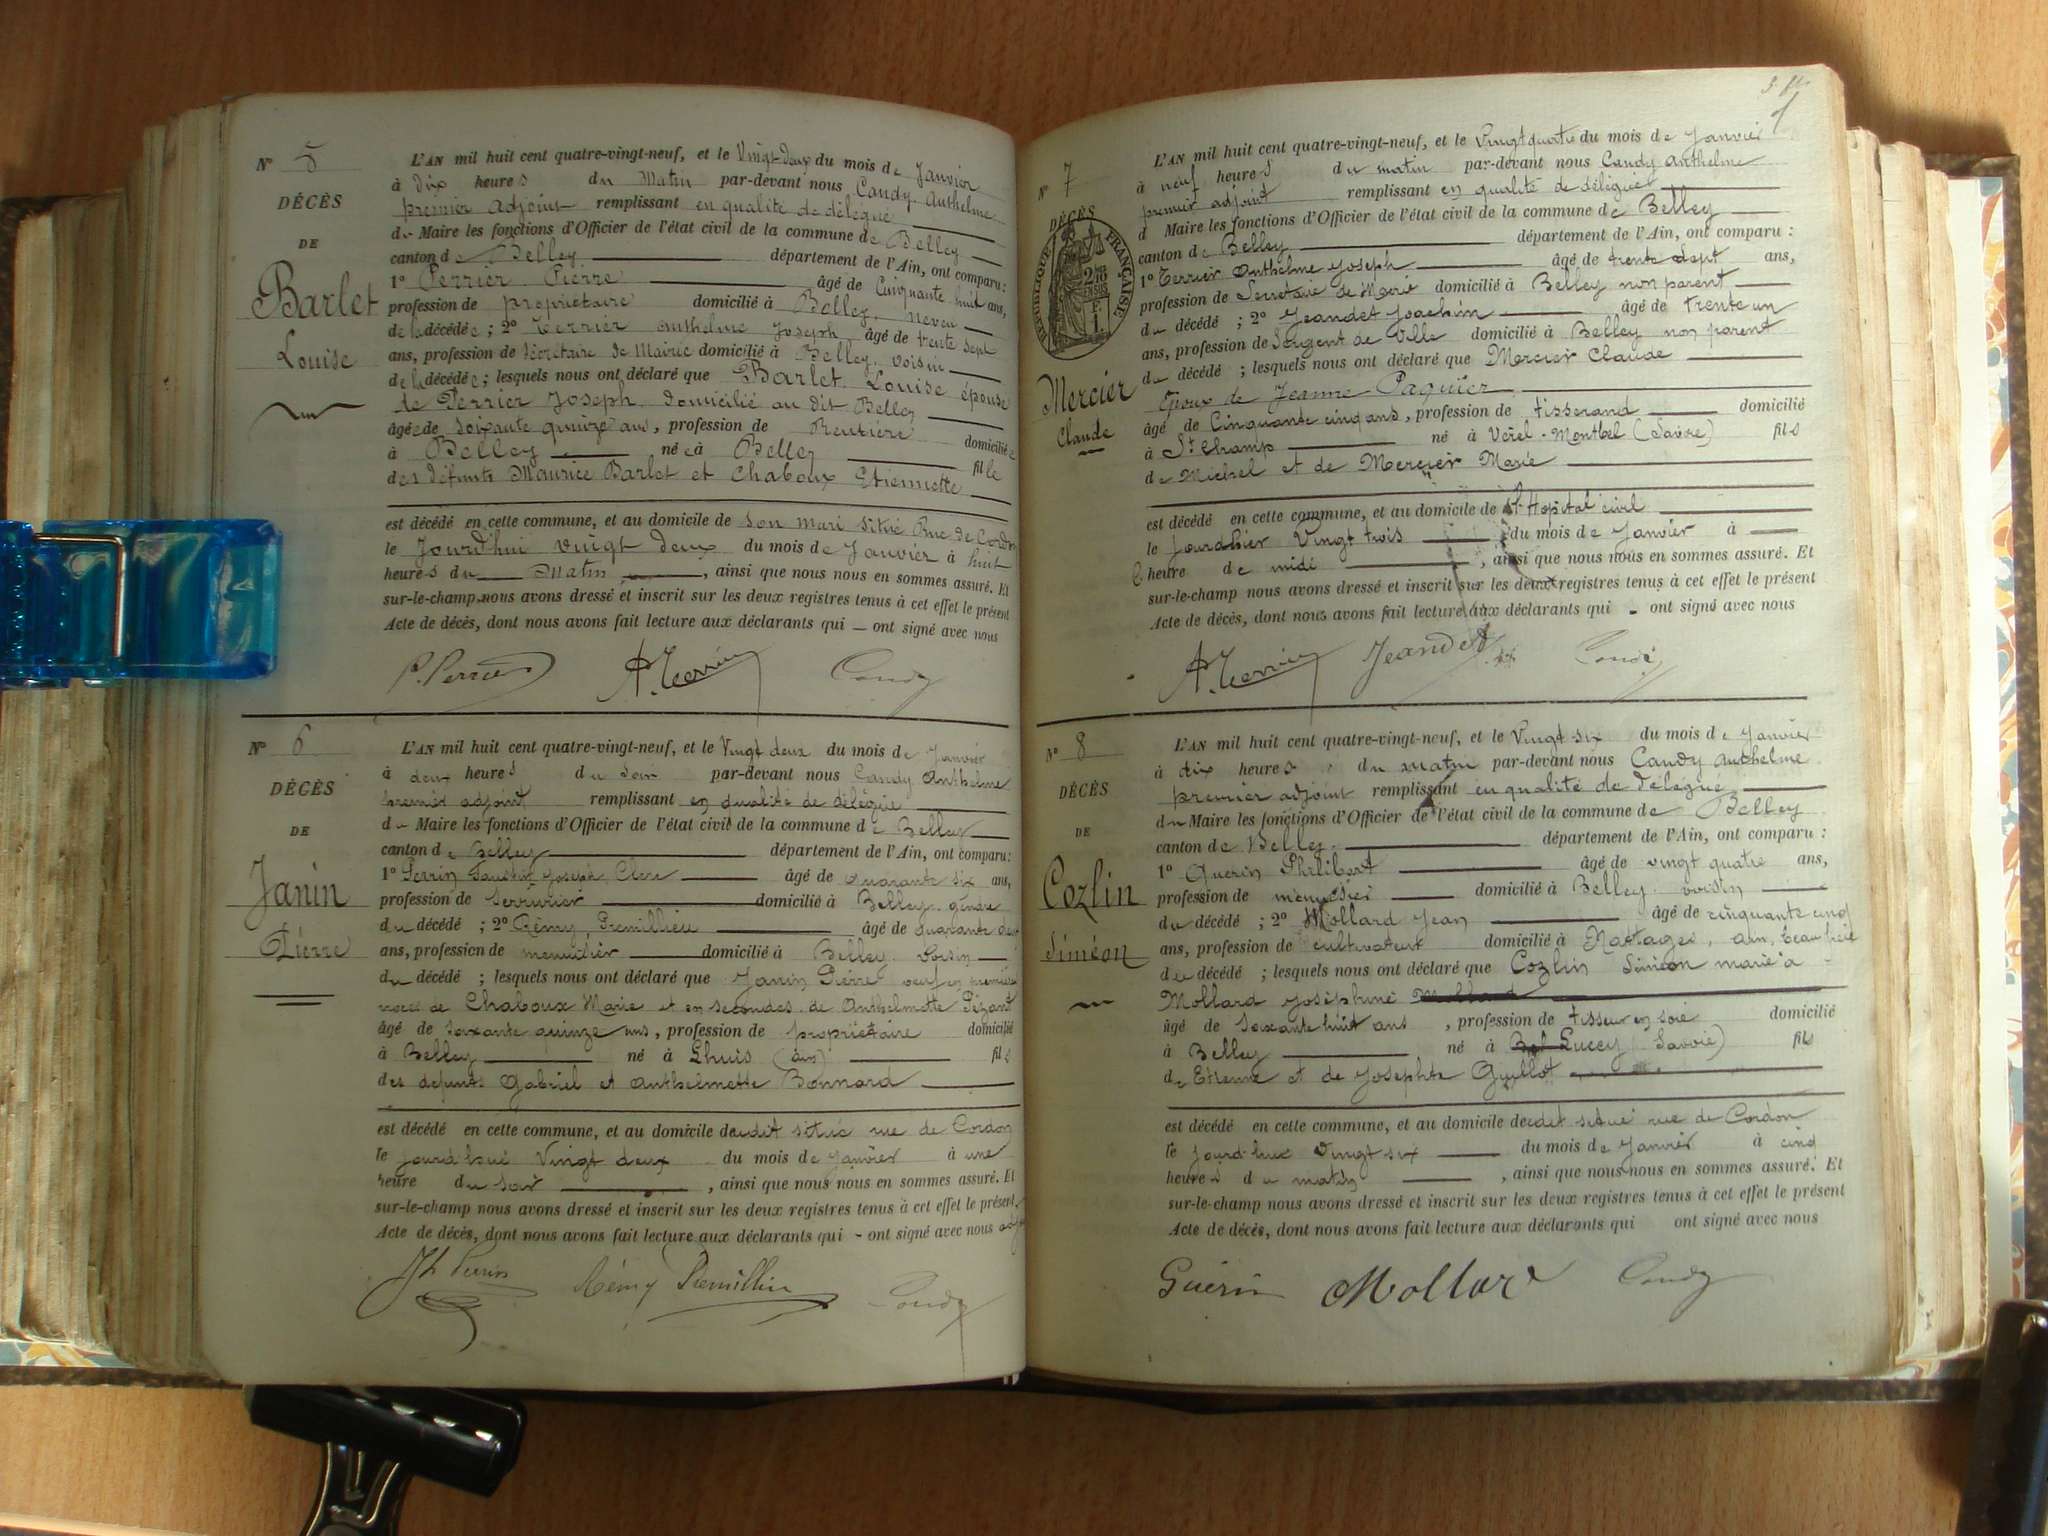 N° 5
DÉCÈS
DE
Barlet
Louise
L'AN mil huit cent quatre-vingt-neuf, et le Vingt-deux du mois de Janvier
à dix heures du Matin par-devant nous Candy Anthelme
premier adjoint remplissant en qualité de délégué
du Maire les fonctions d'Officier de l'état civil de la commune de Belley
canton de Belley département de l'Ain, ont comparu :
1° Perrier Pierre âgé de Cinquante huit ans,
profession de propriétaire domicilié à Belley, neveu
de la décédée ; 2° Terrier Anthelme Joseph âgé de trente sept
ans, profession de Secrétaire de Mairie domicilié à Belley, voisin
de la décédée ; lesquels nous ont déclaré que Barlet Louise épouse
de Perrier Joseph domicilié au dit Belley
âgée de soixante quinze ans, profession de Rentière domiciliée
à Belley née à Belley fille
des défunts Maurice Barlet et Chaboux Etiennette
est décédé en cette commune, et au domicile de son mari situé Rue de Cordon
le Jourd'hui vingt deux du mois de Janvier à huit
heures du Matin, ainsi que nous nous en sommes assuré. Et
sur-le-champ nous avons dressé et inscrit sur les deux registres tenus à cet effet le présent
Acte de décès, dont nous avons fait lecture aux déclarants qui ont signé avec nous
P. Perrier A. Terrier Candy
N° 6
DÉCÈS
DE
Janin
Pierre
L'AN mil huit cent quatre-vingt-neuf, et le Vingt deux du mois de Janvier
à deux heures du soir par-devant nous Candy Anthelme
premier adjoint remplissant en qualité de délégué
du Maire les fonctions d'Officier de l'état civil de la commune de Belley
canton de Belley département de l'Ain, ont comparu :
1° Perrin Joseph âgé de quarante six ans,
profession de serrurier domicilié à Belley, gendre
du décédé ; 2° Rémy, Premillieu âgé de quarante deux
ans, profession de menuisier domicilié à Belley voisin
du décédé ; lesquels nous ont déclaré que Janin Pierre veuf en premières
noces de Chaboux Marie et en secondes de Anthelmette Pizant
âgé de soixante quinze ans, profession de propriétaire domicilié
à Belley né à Lhuis (ain) fils
des défunts Gabriel et Anthelmette Bonnard
est décédé en cette commune, et au domicile dudit situé rue de Cordon
le jourd'hui Vingt deux du mois de Janvier à une
heure du soir, ainsi que nous nous en sommes assuré. Et
sur-le-champ nous avons dressé et inscrit sur les deux registres tenus à cet effet le présent
Acte de décès, dont nous avons fait lecture aux déclarants qui ont signé avec nous
Jh Perrin Rémy Premillieu Candy
N° 7
DÉCÈS
RÉPUBLIQUE FRANÇAISE
Mercier
Claude
L'AN mil huit cent quatre-vingt-neuf, et le Vingt quatre du mois de Janvier
à neuf heures du matin par-devant nous Candy Anthelme
premier adjoint remplissant en qualité de délégué
d Maire les fonctions d'Officier de l'état civil de la commune de Belley
canton de Belley département de l'Ain, ont comparu :
1° Terrier Anthelme Joseph âgé de trente sept ans,
profession de Secrétaire de Mairie domicilié à Belley non parent
du décédé ; 2° Jeandet Joachim âgé de trente un
ans, profession de Sergent de Ville domicilié à Belley non parent
du décédé ; lesquels nous ont déclaré que Mercier Claude
Epoux de Jeanne Paquier
âgé de Cinquante cinq ans, profession de tisserand domicilié
à St Champ né à Verel-Montbel (Savoie) fils
de Michel et de Mercier Marie
est décédé en cette commune, et au domicile de l'Hopital civil
le jourdhier Vingt trois du mois de Janvier à
heure de midi, ainsi que nous nous en sommes assuré. Et
sur-le-champ nous avons dressé et inscrit sur les deux registres tenus à cet effet le présent
Acte de décès, dont nous avons fait lecture aux déclarants qui ont signé avec nous
A. Terrier Jeandet Candy
N° 8
DÉCÈS
DE
Cozlin
Siméon
L'AN mil huit cent quatre-vingt-neuf, et le Vingt six du mois de Janvier
à dix heures du matin par-devant nous Candy Anthelme
premier adjoint remplissant en qualité de délégué
du Maire les fonctions d'Officier de l'état civil de la commune de Belley
canton de Belley département de l'Ain, ont comparu :
1° Guerin Philibert âgé de vingt quatre ans,
profession de menuisier domicilié à Belley voisin
du décédé ; 2° Mollard Jean âgé de cinquante cinq
ans, profession de cultivateur domicilié à Nattages, ain, beau frère
du décédé ; lesquels nous ont déclaré que Cozlin Siméon marié à
Mollard Joséphine
âgé de soixante huit ans, profession de tisseur en soie domicilié
à Belley né à Lucey (Savoie) fils
de Etienne et de Josephte Guillot
est décédé en cette commune, et au domicile dudit situé rue de Cordon
le jourd'hui Vingt six du mois de Janvier à cinq
heures du matin, ainsi que nous nous en sommes assuré. Et
sur-le-champ nous avons dressé et inscrit sur les deux registres tenus à cet effet le présent
Acte de décès, dont nous avons fait lecture aux déclarants qui ont signé avec nous
Guérin Mollard Candy